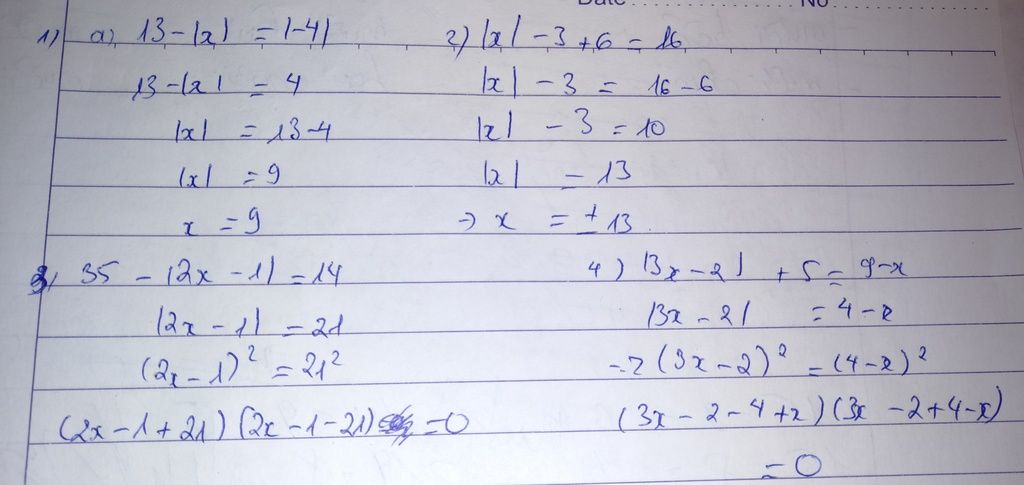 Date No
1) a) 13 - |x| = |-4|
13 - |x| = 4
|x| = 13 - 4
|x| = 9
x = 9
2) |x| - 3 + 6 = 16
|x| - 3 = 16 - 6
|x| - 3 = 10
|x| = 13
→ x = ± 13
3, 35 - |2x - 1| = 14
|2x - 1| = 21
(2x - 1)² = 21²
(2x - 1 + 21) (2x - 1 - 21) = 0
4) |3x - 2| + 5 = 9 - x
|3x - 2| = 4 - x
(3x - 2)² = (4 - x)²
(3x - 2 - 4 + x) (3x - 2 + 4 - x)
= 0